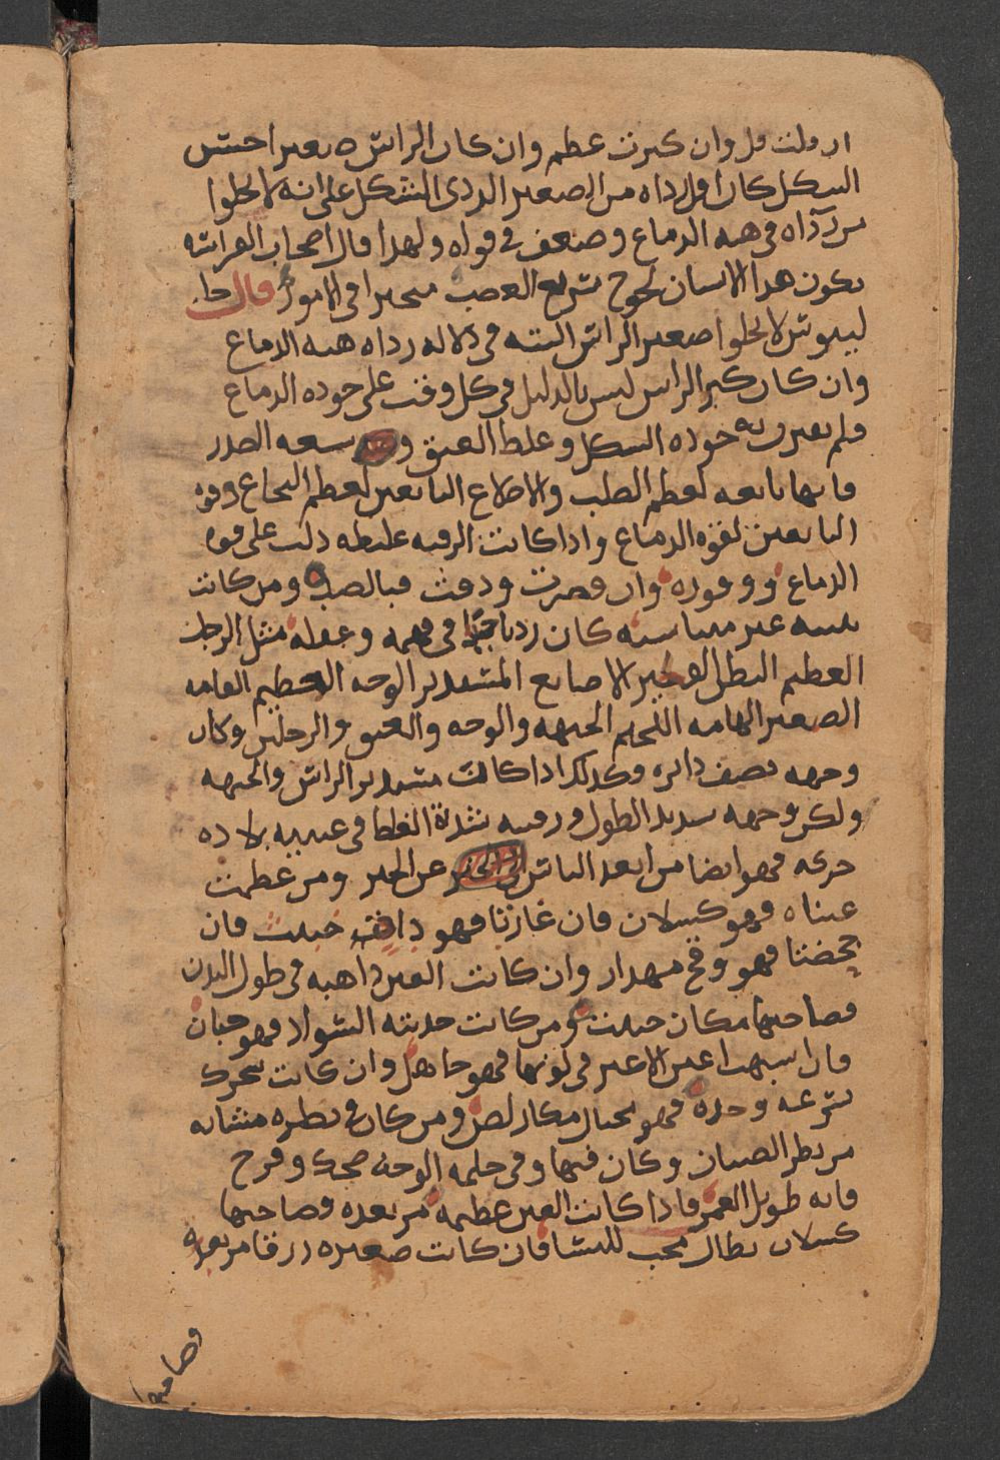 ان قلت قل وان كبرت عظم وان كان الراس صغيرا حسن
الشكل كان اقل رداه من الصغير الردى الشكل على انه لا يخلوا
من رداه في هيه الدماغ وضعف في قواه ولهذا قال اصحاب الفراسه
يكون هذا الانسان لجوج سريع الغضب متحيرا في الامور قال جا
لينوس لا يخلوا صغير الراس البته في دلاله رداه هيه الدماغ
وان كان كبر الراس ليس بالدليل في كل وقت على جوده الدماغ
فلم يقترن به جوده الشكل وغلظ العنق و سعه الصدر
فانها تابعه لعظم الصلب والاضلاع التابعين لعظم النخاع وقوه
التابعين لقوه الدماغ واذا كانت الرقبه غليظه دلت على قوه
الدماغ ووفوره وان قصرت ودقت فبالضد ومن كانت
بنيته غير متناسبه كان رديا حتى في فهمه وعقله مثل الرجل
العظيم البطن القصير الاصابع المستدير الوجه العظيم القامه
الصغير الهامه اللحيم الجبهه والوجه والعنق والرجلين وكان
وجهه نصف دائره وكذلك اذا كانت مستدير الراس والجبهه
ولكن وجهه شديد الطول ورقبته شديدة الغلظ في عينيه بلاده
حركه فهو ايضا من ابعد الناس عن الخير ومن عظمت
عيناه فهو كسلان فان غارتا فهو داهيه خبيث فان
جحضتا فهو وقح مهدار وان كانت العين ذاهبه في طول البدن
فصاحبها مكار خبيث ومن كانت حدقته السواد فهو جبان
فان اشبهت اعين الاعنز في لونها فهو جاهل وان كانت تتحرك
بسرعه وحده فهو محتال مكار لص ومن كان في نظره مشابه
من نظر الصبيان وكان فيها وفي جمله الوجه ضحك وفرح
فانه طويل العمر فاذا كانت العين عظيمه مرتعده فصاحبها
كسلان بطال محب للنسا فان كانت صغيره زرقا مرتعده
وصاحبها